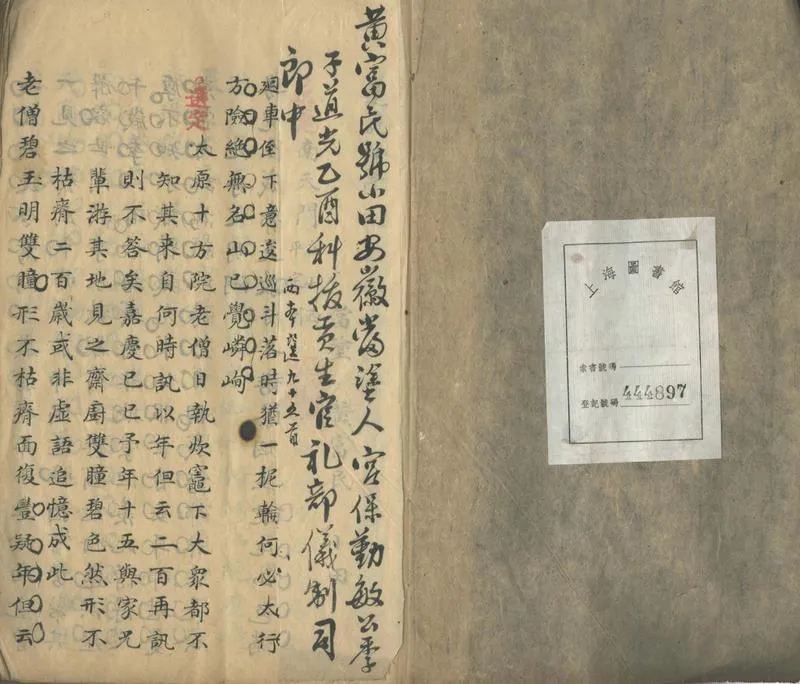 上海圖書館
索書號碼
登記號碼 444897
黄富民號小田安徽當塗人宫保勤敏公季
子道光乙酉科拔貢生官礼部儀制司
郎中
兩本選九十五首
迴車徑下意逡巡斗落時猶一柅輪何必太行
方險絶無名山已覺嶙峋
選定
太原十方院老僧日執炊竈下大衆都不
知其来自何時訊以年但云二百再訊
則不答矣嘉慶己巳予年十五與家兄
輩游其地見之齋廚雙瞳碧色然形不
枯瘠二百歲或非虛語追憶成此
老僧碧玉明雙瞳形不枯瘠面復豐疑年但云